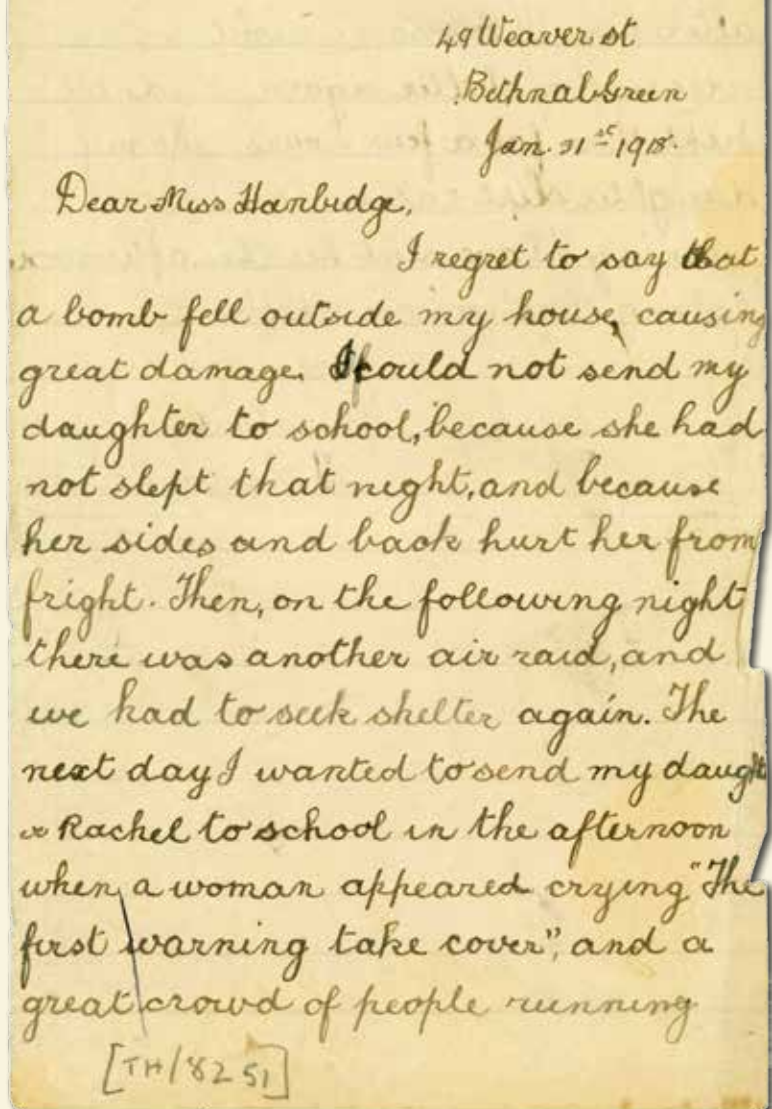 49 Weaver st
Bethnal Green
Jan. 31st 1918.
Dear Miss Hanbidge,
I regret to say that
a bomb fell outside my house, causing
great damage. I could not send my
daughter to school, because she had
not slept that night, and because
her sides and back hurt her from
fright. Then, on the following night
there was another air raid, and
we had to seek shelter again. The
next day I wanted to send my daught
er Rachel to school in the afternoon
when a woman appeared crying "The
first warning take cover", and a
great crowd of people running
[TH/8251]